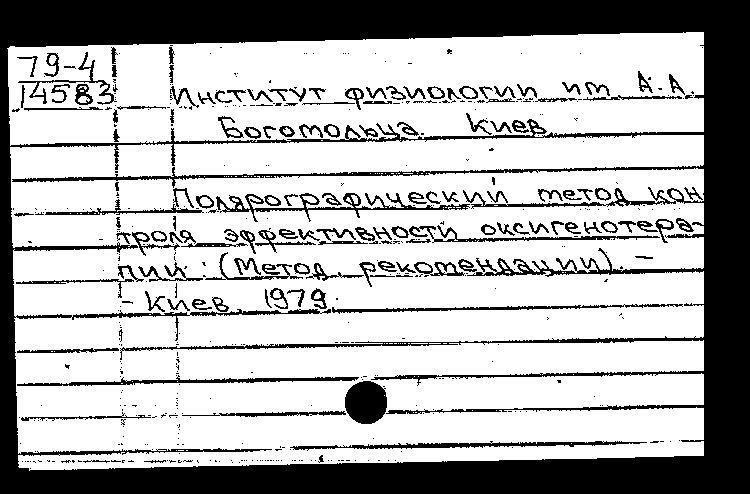 79-4
14583
Институт физиологии им. А.А.
Богомольца. Киев.
Полярографический метод кон-
троля эффективности оксигенотера-
пии: (Метод. рекомендации). –
- Киев, 1979.